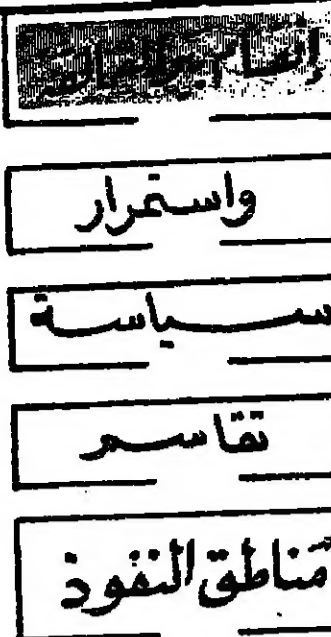 واستمرار
سياسة
تقاسم
مناطق النفوذ